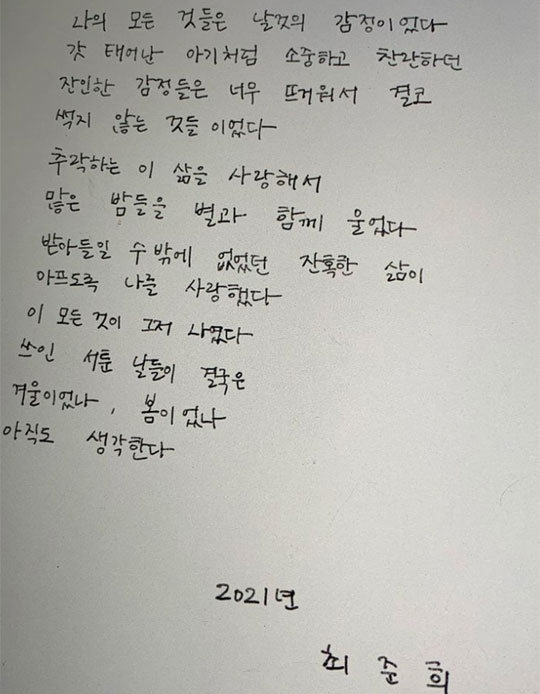 나의 모든 것들은 날것의 감정이었다
갓 태어난 아기처럼 소중하고 찬란하던
잔인한 감정들은 너무 뜨거워서 결코
썩지 않는 것들이었다
추락하는 이 삶을 사랑해서
많은 밤들을 별과 함께 울었다
받아들일 수 밖에 없었던 잔혹한 삶이
아프도록 나를 사랑했다
이 모든 것이 그저 나였다
쓰인 서툰 날들이 결국은
겨울이었나, 봄이었나
아직도 생각한다
2021년
최준희